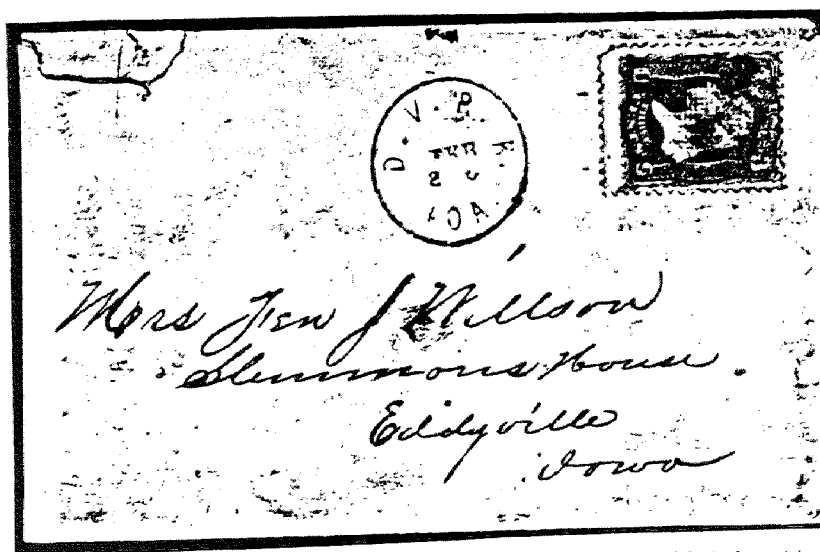 D. V. P. R.
2
IOA.
Mrs Jen J Willson
Slemmons House.
Eddyville
Iowa